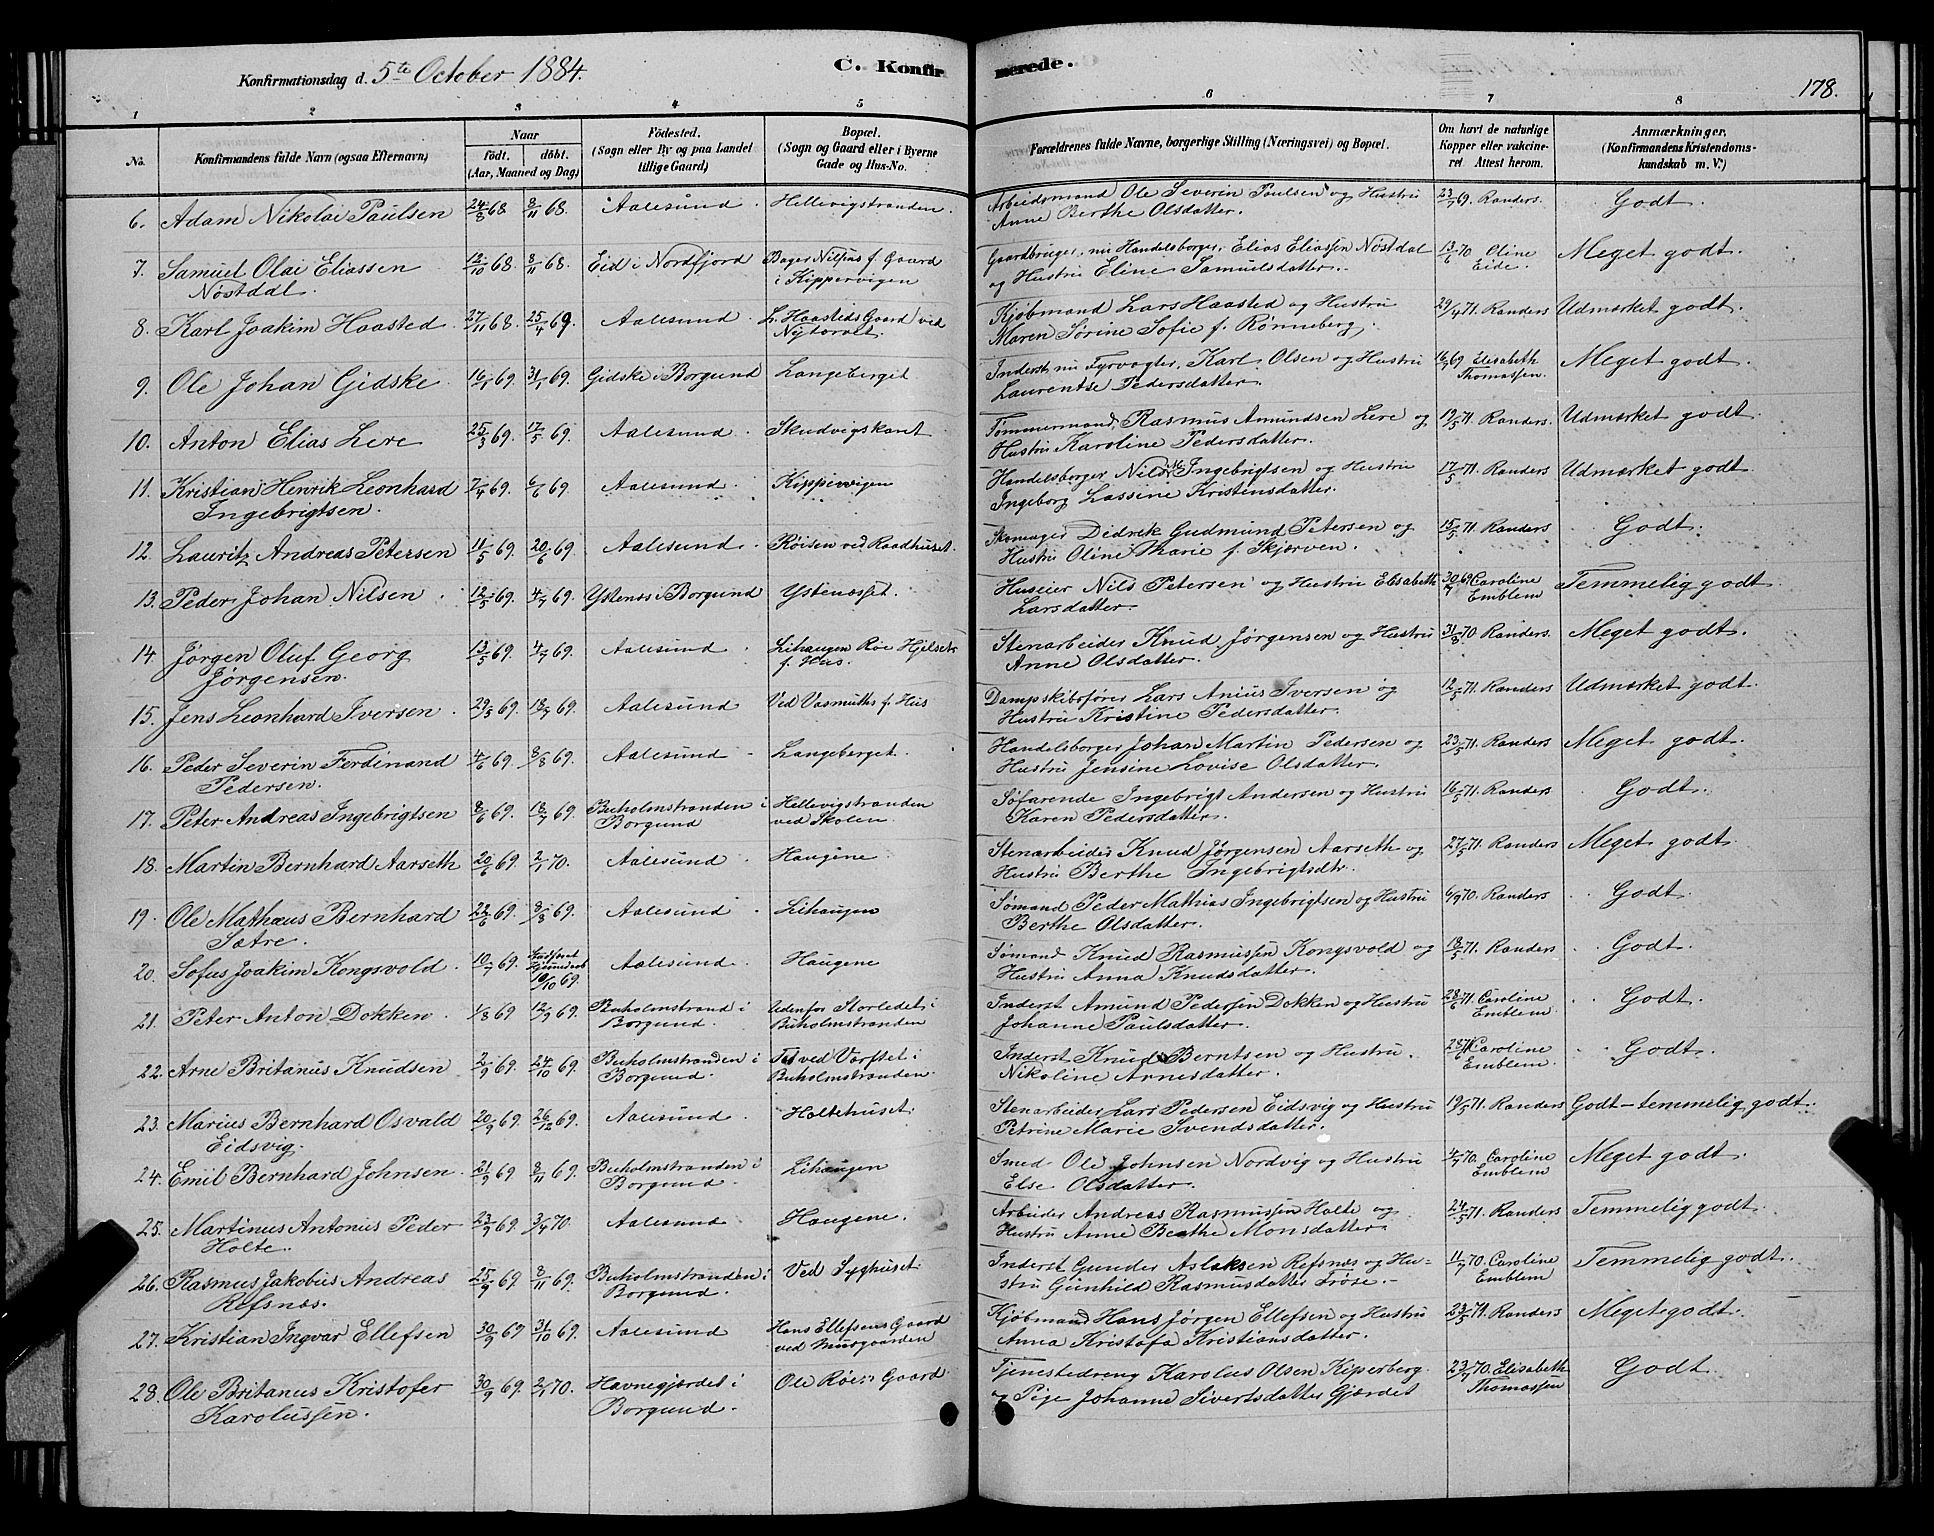 Konfirmationsdag d. 5te October 1884.
C. Konfirmerede.
178.
1 2 3 4 5 6 7 8
No.
Konfirmandens fulde Navn (ogsaa Efternavn)
Naar
födt. döbt.
(Aar, Maaned og Dag)
Födested.
(Sogn eller By og paa Landet
tillige Gaard)
Bopæl.
(Sogn og Gaard eller i Byerne
Gade og Hus-No.
Forældrenes fulde Navne, borgerlige Stilling (Næringsvei) og Bopæl.
Om havt de naturlige
Kopper eller vakcineret.
Attest herom.
Anmærkninger,
(Konfirmandens Kristendomskundskab
m. V.)
6. Adam Nikolai Paulsen 24/8 68 8/11 68. Aalesund. Hellevigstranden. Arbeidsmand Ole Severin Paulsen og Hustru 23/7 69. Randers. Godt.
Anne Berthe Olsdatter.
7. Samuel Olai Eliassen 12/10 68. 8/11 68. Eid i Nordfjord Bager Nilsens f. Gaard Gaardbruger, nu Handelsborger, Elias Eliassen Nöstdal 13/6 70 Oline Meget godt.
Nöstdal i Kippervigen og Hustru Eline Samuelsdatter. Eide.
8. Karl Joakim Haasted 27/11 68. 25/4 69 Aalesund. L. Haasteds Gaard ved Kjöbmand Lars Haasted og Hustru 29/4 71. Randers Udmærket godt.
Nytorvet Maren Sörine Sofie f. Rönneberg.
9. Ole Johan Gidske 16/1 69. 31/1 69. Gidske i Borgund Langeberget Inderst, nu Fyrvogter, Karl Olsen og Hustru 16/7 69 Elisabeth Meget godt.
Laurentse Pedersdatter. Thomassen.
10. Anton Elias Lere 25/3 69. 17/5 69. Aalesund. Skudvigskaret Tömmermand Rasmus Amundsen Lere og 12/5 71. Randers. Udmærket godt.
Hustru Karoline Pedersdatter.
11. Kristian Henrik Leonhard 7/4 69. 6/6 69. Aalesund. Kippervigen Handelsborger Nils M. Ingebrigtsen og Hustru 17/5 71. Randers Udmærket godt
Ingebrigtsen. Ingeborg Lassine Kristensdatter.
12. Lauritz Andreas Petersen 11/5 69. 20/6 69. Aalesund. Röisen ved Raadhuset. Skomager Didrik Gudmund Petersen og 15/5 71. Randers Godt.
Hustru Oline Marie f. Skjærven.
13. Peder Johan Nilsen 12/5 69. 4/7 69. Ystenæs i Borgund Ystenæsset. Huseier Nils Petersen og Hustru Elisabeth 30/7 69 Caroline Temmelig godt
Larsdatter. Emblem
14. Jörgen Oluf Georg 13/5 69. 4/7 69. Aalesund. Lihaugen Roe Hjelsets Stenarbeider Knud Jörgensen og Hustru 31/8 70 Randers. Meget godt.
Jörgensen. f. Hus. Anne Olsdatter.
15. Jens Leonhard Iversen. 29/5 69. 18/7 69. Aalesund Ved Vasmuths f. Hus Dampskibsförer Lars Anius Iversen og 12/5 71. Randers Udmærket godt.
Hustru Kristine Pedersdatter.
16. Peder Severin Ferdinand 4/6 69. 8/8 69. Aalesund Langeberget. Handelsborger Johan Martin Pedersen og 23/5 71. Randers Meget godt.
Pedersen. Hustru Jensine Lovise Olsdatter.
17. Peter Andreas Ingebrigtsen 8/6 69. 18/7 69. Buholmstranden i Hellevigstranden Söfarende Ingebrigt Andersen og Hustru 16/5 71. Randers Godt.
Borgund ved Skolen. Karen Pedersdatter.
18. Martin Bernhard Aarseth 20/6 69. 2/1 70. Aalesund Haugene Stenarbeider Knud Jörgensen Aarseth og 27/5 71. Randers Meget godt.
Hustru Berthe Ingebrigtsdtr.
19. Ole Mathæus Bernhard 22/6 69. 8/8 69. Aalesund. Lihaugen Sömand Peder Mathias Ingebrigtsen og Hustru 6/9 70. Randers Godt.
Sætre. Berthe Olsdatter.
20. Sofus Joakim Kongsvold. 10/7 69. Stadfæstet Aalesund. Haugene Sömand Knud Rasmussen Kongsvold og 18/5 71. Randers Godt.
Hjemmedaab Hustru Anna Knudsdatter.
10/10 69.
21. Peter Anton Dokken 1/8 69 12/9 69. Buholmstrand i Udenfor Storledet i Inderst Amund Pedersen Dokken og Hustru 28/6 71. Caroline Godt.
Borgund. Buholmstranden Johanne Paulsdatter. Emblem.
22. Arne Britanus Knudsen 2/9 69. 24/10 69. Buholmstranden i Tæt ved Værftet i Inderst Knud Berntsen og Hustru. 28/6 71. Caroline Godt.
Borgund. Buholmstranden. Nikoline Arnesdatter. Emblem.
23. Marius Bernhard Osvald 20/9 69. 26/12 69. Aalesund. Holtehuset. Stenarbeider Lars Pedersen Eidsvig og Hustru 19/5 71. Randers Godt-temmelig godt.
Eidsvig. Petrine Marie Svendsdatter.
24. Emil Bernhard Johnsen. 21/9 69. 8/11 69. Buholmstranden i Lihaugen Smed Ole Johnsen Nordvig og Hustru 4/7 70. Caroline Meget godt.
Borgund. Else Olsdatter. Emblem
25. Martinus Antonius Peder 23/9 69. 3/4 70. Aalesund Haugene. Arbeider Andreas Rasmussen Holte og 24/5 71. Randers Temmelig godt.
Holte. Hustru Anne Berthe Monsdatter.
26. Rasmus Jakobus Andreas 25/9 69 8/11 69. Buholmstranden i Ved Syghuset Inderst Gunder Aslaksen Refsnæs og Hu- 11/7 70. Caroline Temmelig godt.
Refsnæs. Borgund. stru Gunhild Rasmusdatter Fröse. Emblem
27. Kristian Ingvar Ellefsen 30/9 69 31/10 69. Aalesund Hans Ellefsens Gaard Kjöbmand Hans Jörgen Ellefsen og Hustru 23/5 71. Randers Meget godt.
ved Murgaarden Anna Kristofa Kristiansdatter.
28. Ole Britanus Kristofer 30/9 69. 2/1 70. Havnegjærdet i Ole Röers Gaard Tjenestedreng Karolus Olsen Kiperberg 23/7 70. Elisabeth Godt.
Karolussen. Borgund. og Pige Johanne Sivertsdatter Gjerdet Thomassen